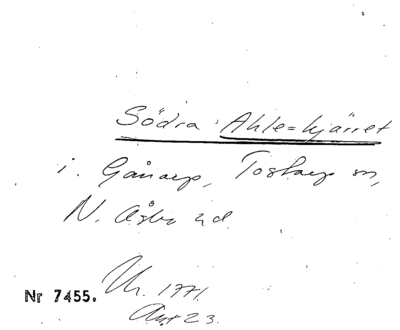 Södra Ahle=kjärret
i. Gånarp, Tostarp sn,
N. Åsbo hd.
Nr 7455.
1771.
Akt 23.